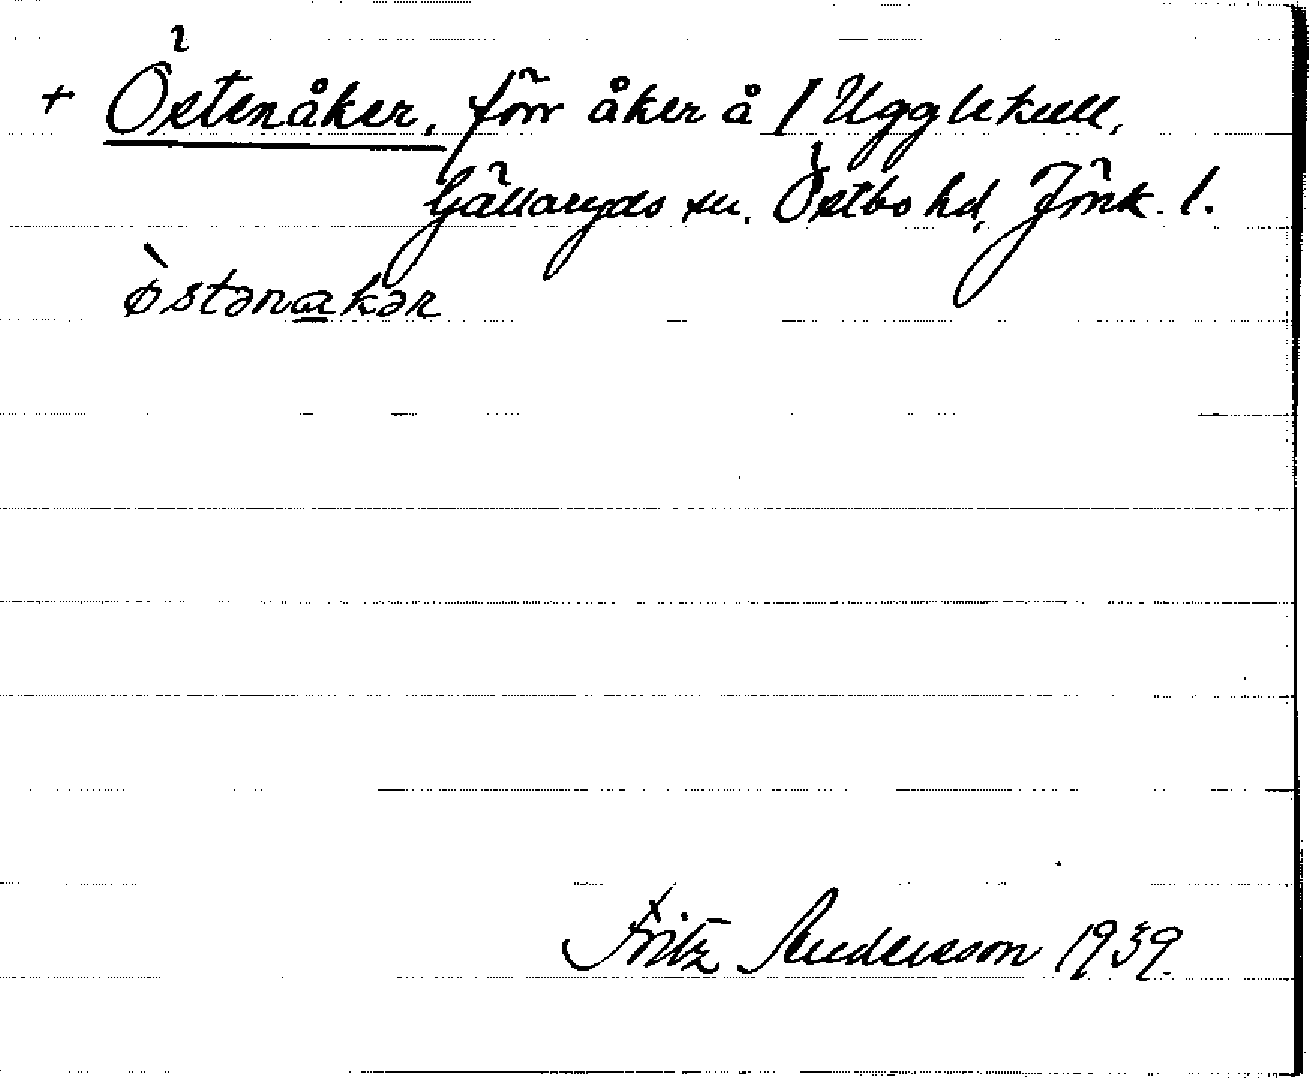 + Östenåker, förr åker å / Ugglekull,
Gällaryds sn. Östbo hd, Jönk. l.
ø̀stənakər
Fritz Andersson 1939.